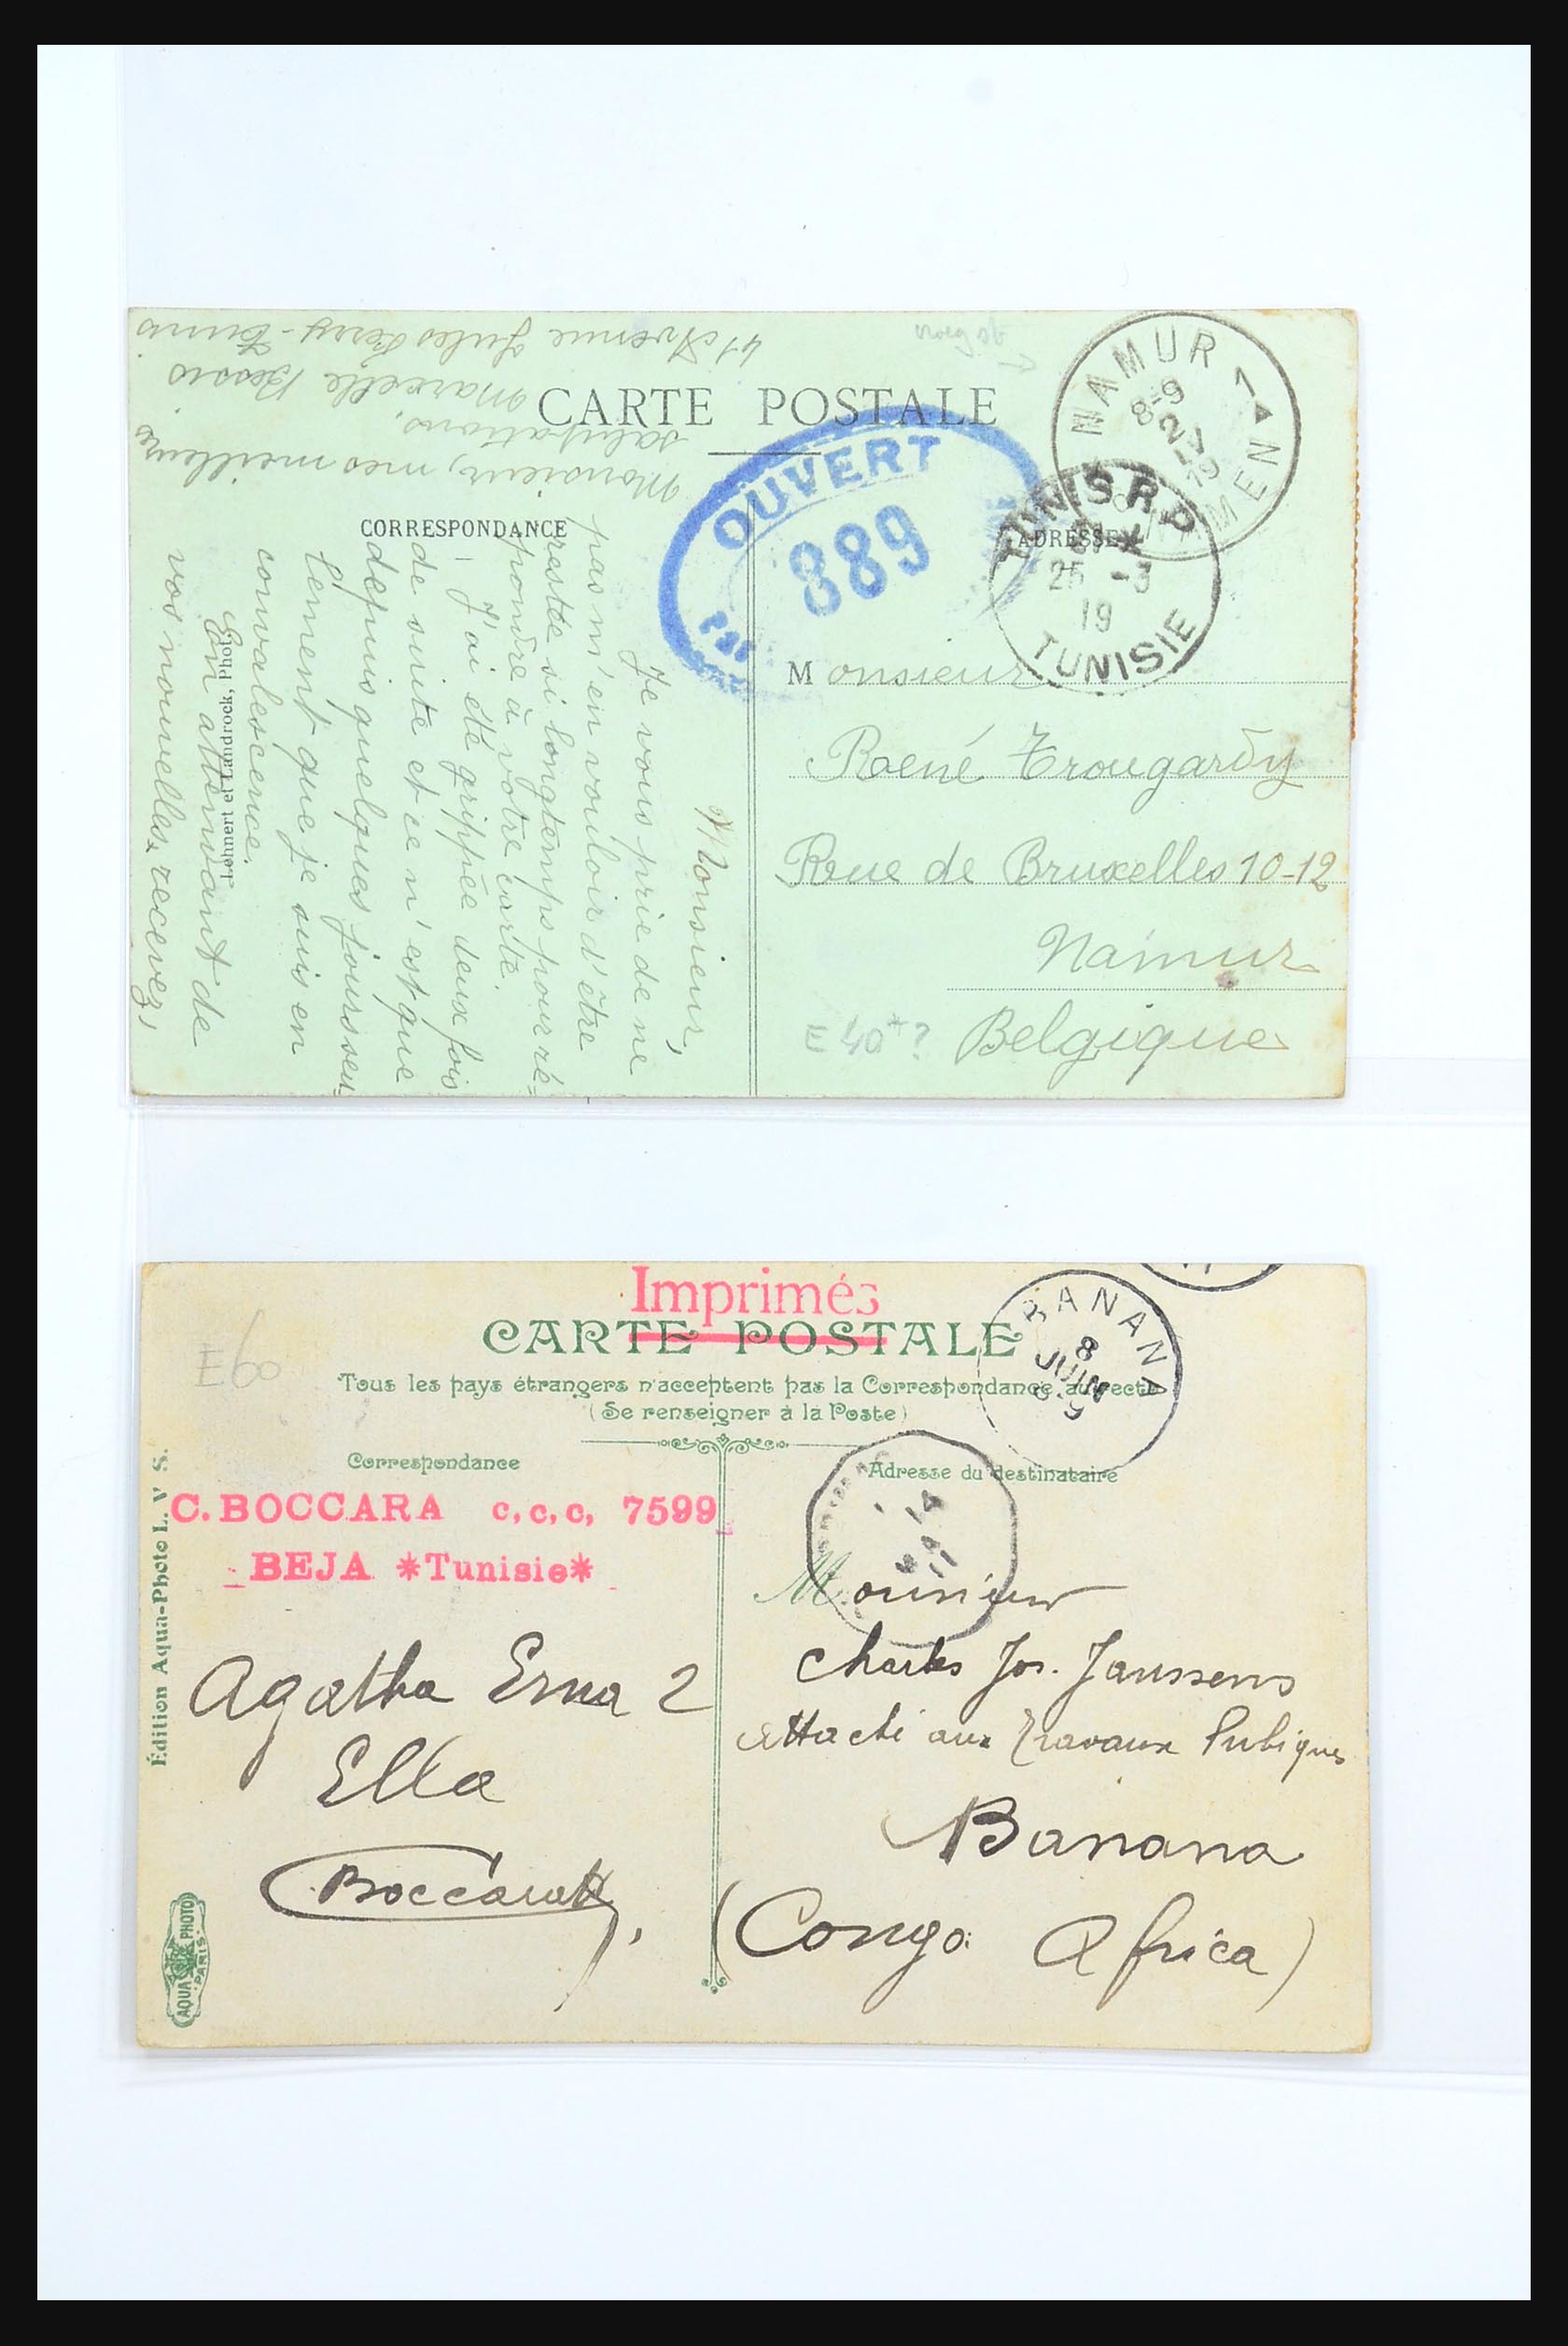 CARTE POSTALE
CORRESPONDANCE
ADRESSE
NAMUR 1
8-9
NAMEN
OUVERT
889
TUNIS R.P.
25 -3
19
TUNISIE
Monsieur,
Je vous prie de ne
pas m'en vouloir d'être
restée si longtemps pour ré=
pondre à votre carte.
J'ai été grippée deux fois
de suite et ce n'est que
depuis quelques jours seu=
lement que je suis en
convalescence.
En attendant de
vos nouvelles, recevez,
Monsieur, mes meilleures
salutations.
Marcelle Bessis
41 Avenue Jules Ferry - Tunis
Lehnert et Landrock, Phot.
Monsieur
René Trougardy
Rue de Bruxelles 10-12
Namur
Belgique
E 40+?
Imprimés
CARTE POSTALE
Tous les pays étrangers n'acceptent pas la Correspondance au recto
(Se renseigner à la Poste)
Correspondance
Adresse du destinataire
E60
BANANA
8
JUIN
14
11
C. BOCCARA c,c,c, 7599
BEJA *Tunisie*
Agatha Erna 2
Ella
Boccara
Monsieur
Charles Jos. Janssens
Attaché aux Travaux Publiques
Banana
(Congo Africa)
Édition Aqua-Photo L. V S.
AQUA PHOTO
PARIS